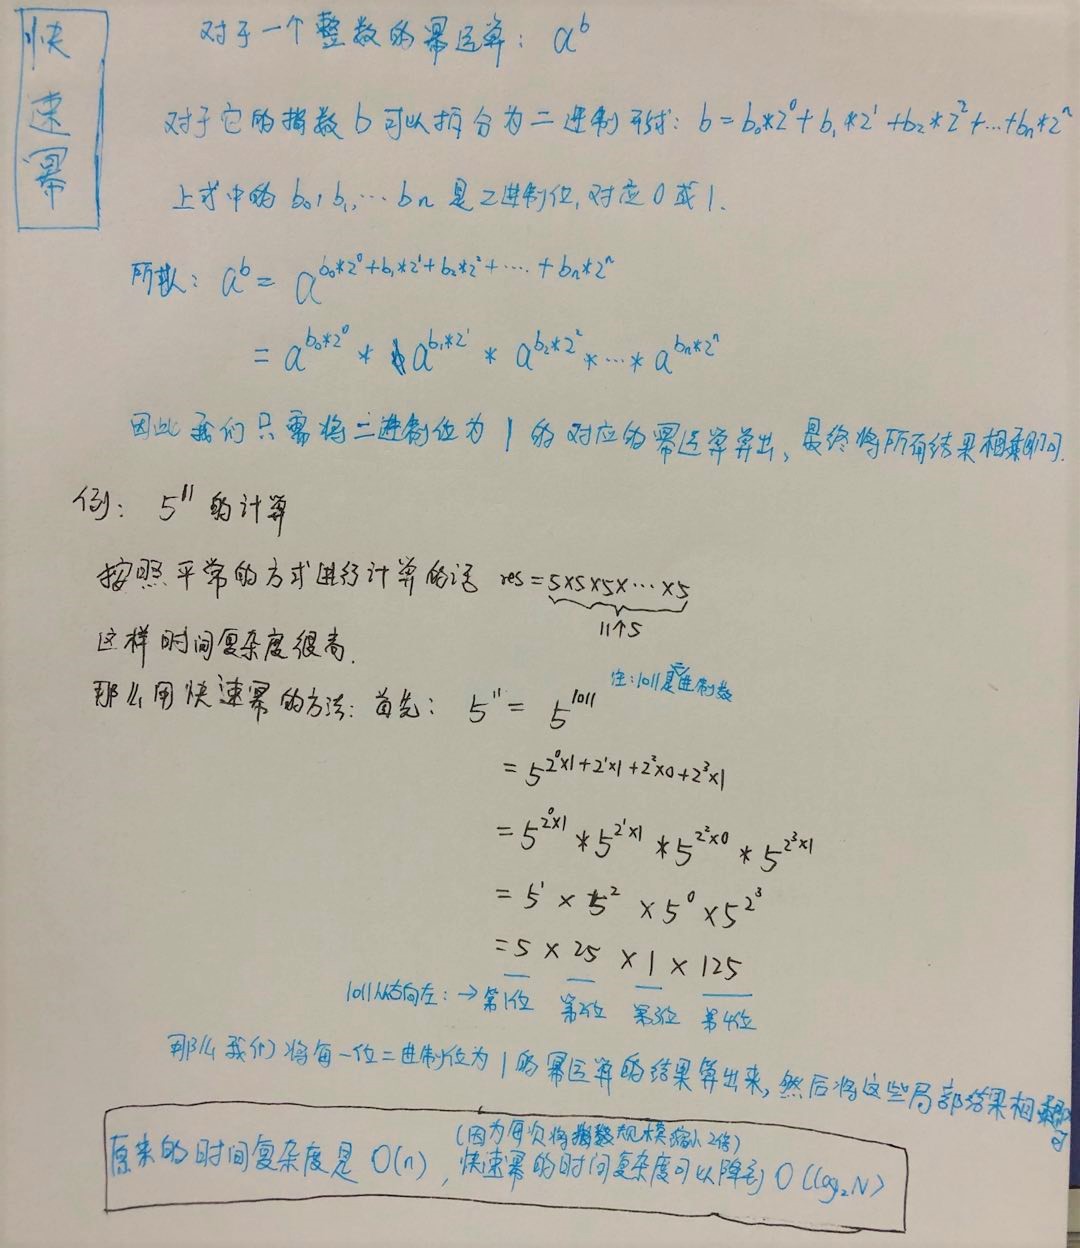 快速幂
对于一个整数的幂运算: a^b
对于它的指数b可以拆分为二进制形式: b = b₀*2⁰ + b₁*2¹ + b₂*2² + … + bₙ*2ⁿ
上式中的 b₀, b₁, … bₙ 是2进制位, 对应0或1.
所以: a^b = a^(b₀*2⁰+b₁*2¹+b₂*2²+……+bₙ*2ⁿ)
= a^(b₀*2⁰) * a^(b₁*2¹) * a^(b₂*2²) * … * a^(bₙ*2ⁿ)
因此我们只需将二进制位为1的对应的幂运算算出, 最终将所有结果相乘即可.
例: 5¹¹的计算
按照平常的方式进行计算的话 res = 5×5×5×…×5
11个5
这样时间复杂度很高.
注: 1011是二进制数
那么用快速幂的方法: 首先: 5¹¹ = 5¹⁰¹¹
= 5^(2⁰×1+2¹×1+2²×0+2³×1)
= 5^(2⁰×1) * 5^(2¹×1) * 5^(2²×0) * 5^(2³×1)
= 5¹ × 5² × 5⁰ × 5^(2³)
= 5 × 25 × 1 × 125
1011从右向左: → 第1位 第2位 第3位 第4位
那么我们将每一位二进制位为1的幂运算的结果算出来, 然后将这些局部结果相乘即可
(因为每次将指数规模缩小2倍)
原来的时间复杂度是 O(n), 快速幂的时间复杂度可以降到 O(log₂N)